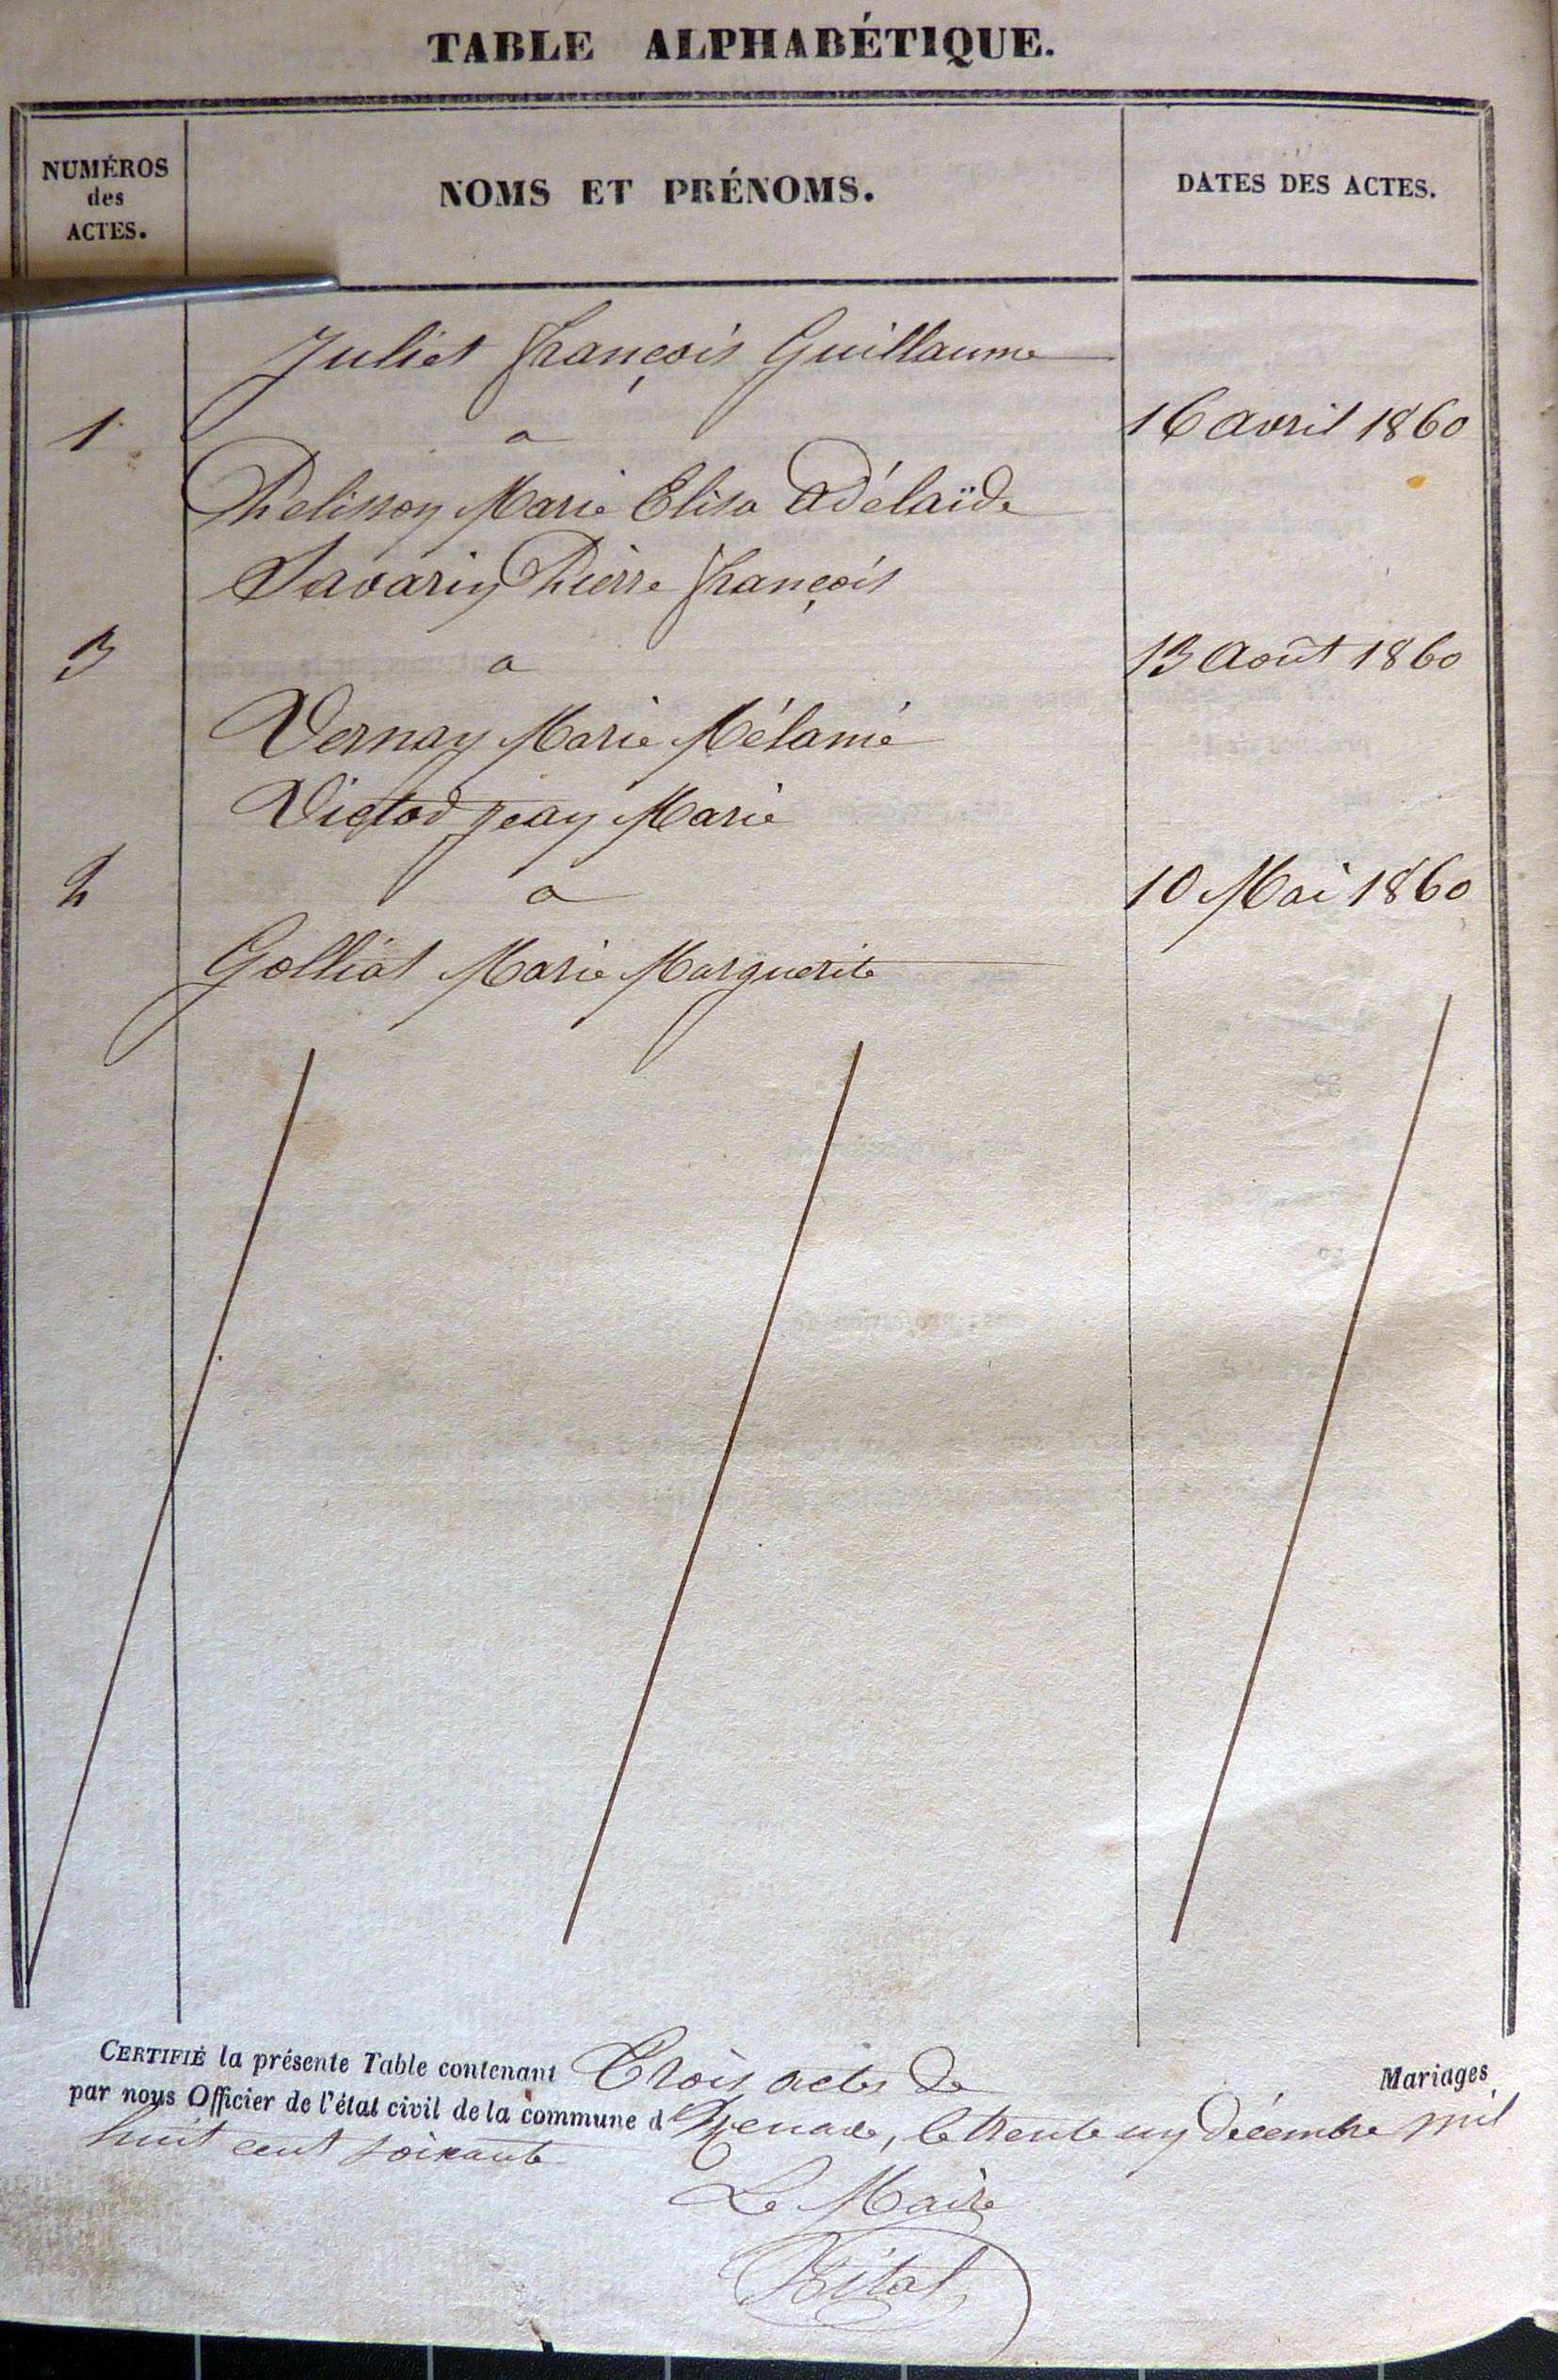 TABLE ALPHABÉTIQUE.
NUMÉROS
des
ACTES.
NOMS ET PRÉNOMS.
DATES DES ACTES.
Juliet françois Guillaume
1 a 16 avril 1860
Pelisson Marie Elisa adélaïde
Savarin Pierre françois
3 a 13 août 1860
Vernay Marie Mélanie
Victod jean Marie
2 a 10 Mai 1860
Golliat Marie Marguerite
CERTIFIÉ la présente Table contenant Trois actes de Mariages
par nous Officier de l'état civil de la commune d' , le trente un décembre mil
huit cent soixante
Le Maire
Vital